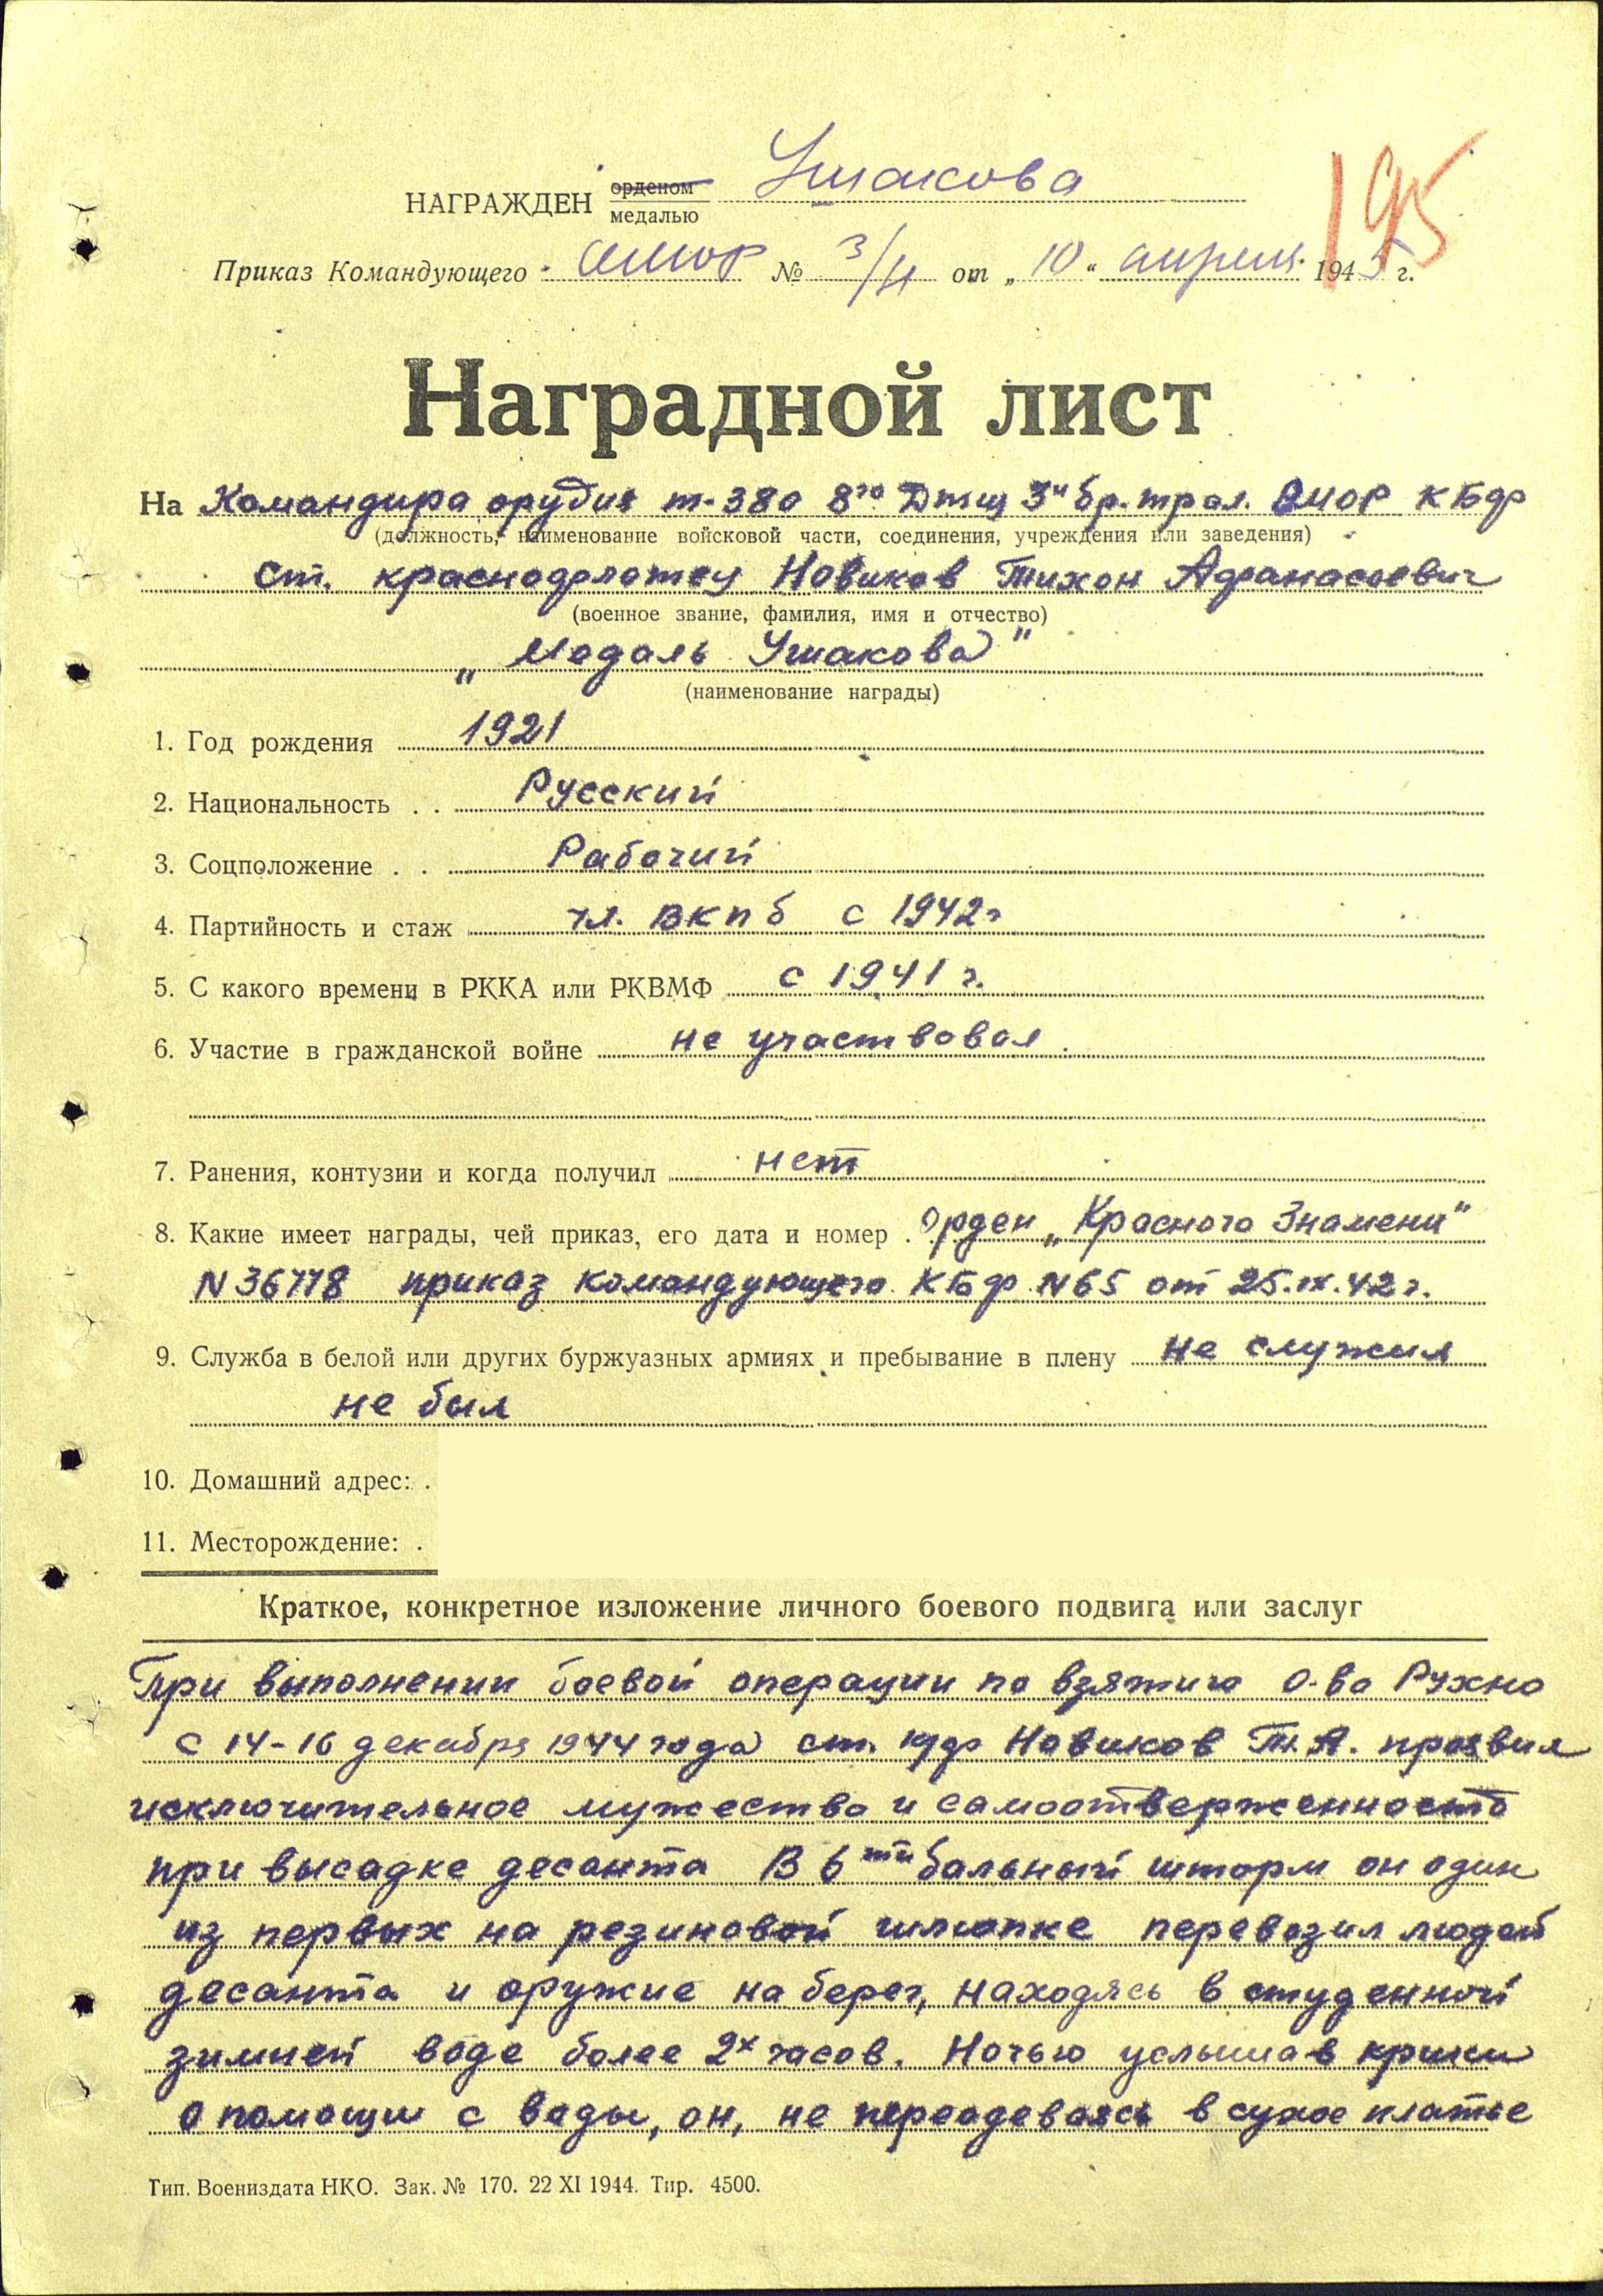 195
НАГРАЖДЕН орденом медалью Ушакова
Приказ Командующего ОМОР № 3/Н от „10“ апреля 1945 г.
Наградной лист
На Командира орудия т-380 8го Дтщ 3й бр. трал. ОМОР КБФ
(должность, наименование войсковой части, соединения, учреждения или заведения)
ст. краснофлотец Новиков Тихон Афанасьевич
(военное звание, фамилия, имя и отчество)
„Медаль Ушакова"
(наименование награды)
1. Год рождения 1921
2. Национальность . . Русский
3. Соцположение . . Рабочий
4. Партийность и стаж чл. ВКПб с 1942г
5. С какого времени в РККА или РКВМФ с 1941 г.
6. Участие в гражданской войне не участвовал.
7. Ранения, контузии и когда получил нет
8. Какие имеет награды, чей приказ, его дата и номер . Орден „Красного Знамени"
N 36778 приказ командующего КБФ N 65 от 25.IX.42 г.
9. Служба в белой или других буржуазных армиях и пребывание в плену не служил
не был
10. Домашний адрес: .
11. Месторождение: .
Краткое, конкретное изложение личного боевого подвига или заслуг
При выполнении боевой операции по взятию о-ва Рухно
с 14-16 декабря 1944 года ст. кдф Новиков Т.А. проявил
исключительное мужество и самоотверженность
при высадке десанта В 6ти бальный шторм он один
из первых на резиновой шлюпке перевозил людей
десанта и оружие на берег, находясь в студенной
зимней воде более 2х часов. Ночью услышав крики
о помощи с воды, он, не переодеваясь в сухое платье
Тип. Воениздата НКО. Зак. № 170. 22 XI 1944. Тир. 4500.